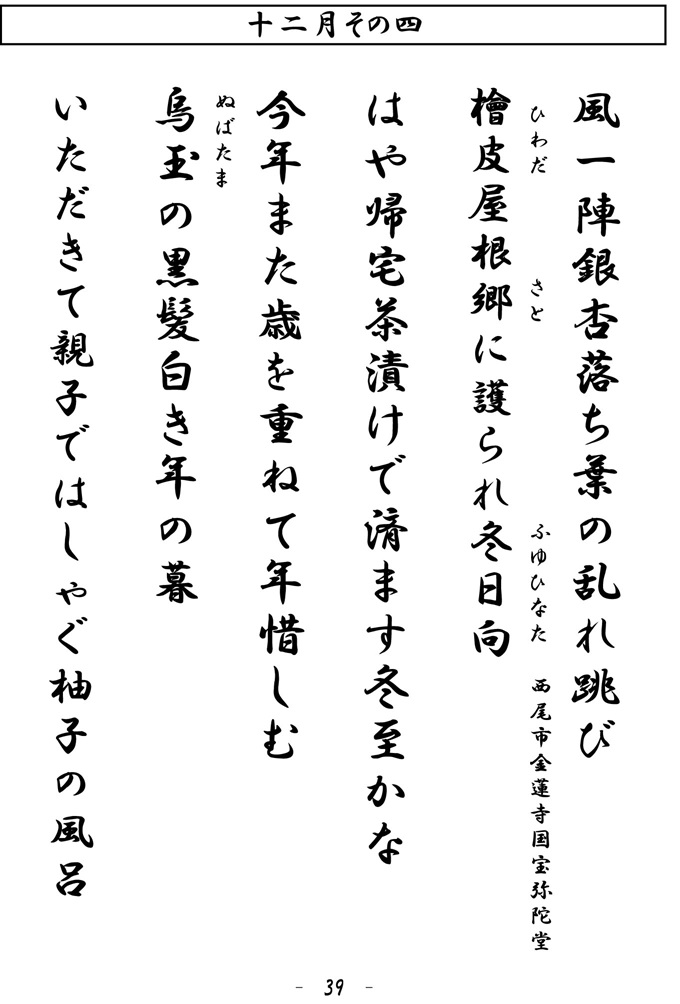 十二月その四
風一陣銀杏落ち葉の乱れ跳び
ひわだ さと ふゆひなた 西尾市金蓮寺国宝弥陀堂
檜皮屋根郷に護られ冬日向
はや帰宅茶漬けで済ます冬至かな
今年また歳を重ねて年惜しむ
ぬばたま
烏玉の黒髪白き年の暮
いただきて親子ではしゃぐ柚子の風呂
- 39 -